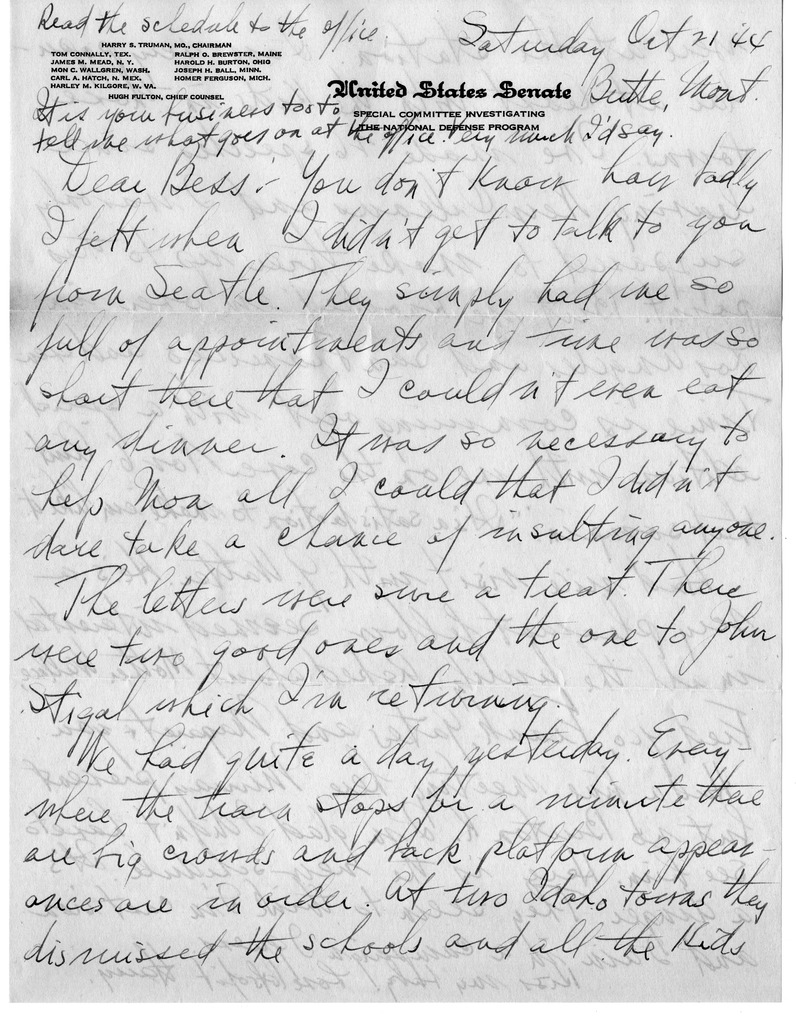 Read the schedule to the office.
Saturday Oct 21 '44
HARRY S. TRUMAN, MO., CHAIRMAN
TOM CONNALLY, TEX. RALPH O. BREWSTER, MAINE
JAMES M. MEAD, N. Y. HAROLD H. BURTON, OHIO
MON C. WALLGREN, WASH. JOSEPH H. BALL, MINN.
CARL A. HATCH, N. MEX. HOMER FERGUSON, MICH.
HARLEY M. KILGORE, W. VA.
HUGH FULTON, CHIEF COUNSEL
United States Senate
Butte, Mont.
SPECIAL COMMITTEE INVESTIGATING
THE NATIONAL DEFENSE PROGRAM
It is your business too to
tell me what goes on at the office. Very much I'd say.
Dear Bess:- You don't know how badly
I felt when I didn't get to talk to you
from Seatle. They simply had me so
full of appointments and time was so
short there that I couldn't even eat
any dinner. It was so necessary to
help Mon all I could that I didn't
dare take a chance of insulting anyone.
The letters were sure a treat. There
were two good ones and the one to John
Stigal which I'm returning.
We had quite a day yesterday. Every-
where the train stops for a minute there
are big crowds and back platform appear-
ances are in order. At two Idaho towns they
dismissed the schools and all the kids